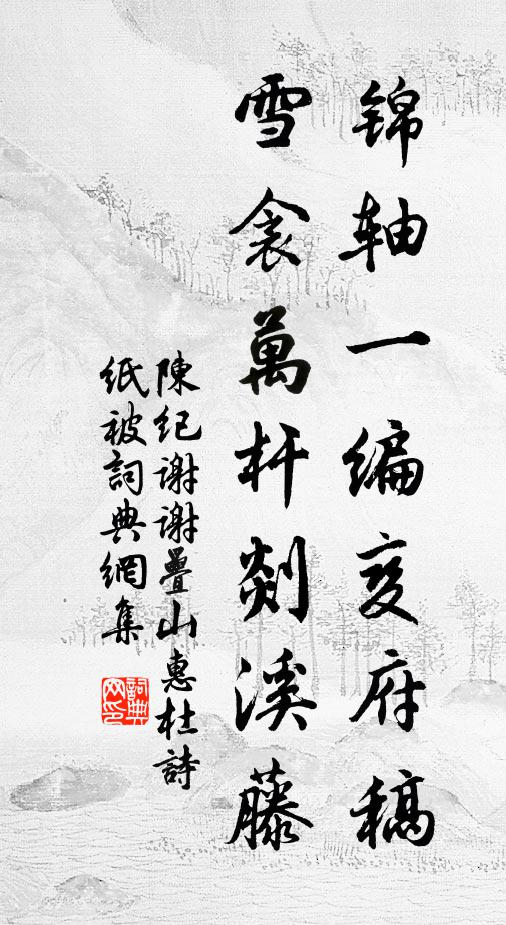 錦軸一編夔府稿
雪衾萬杵剡溪藤
陳紀謝謝疊山惠杜詩
紙被詞典網集
詞典
网印